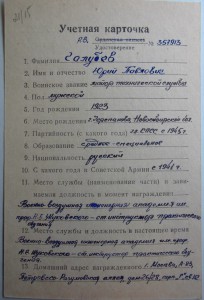 20/15
Учетная карточка
Удостоверение № 357913
1. Фамилия Салубев
2. Имя и отчество Юрий Павлович
3. Воинское звание майор технической службы
4. Пол мужской
5. Год рождения 1923
6. Место рождения Новосибирской обл.
7. Партийность (с какого года) чл. КПСС с 1945 г.
8. Образование средне-специальное
9. Национальность русский
10. С какого года в Советской Армии с 1941 г.
11. Место службы (наименование части) и
должность в момент награждения
Военно-воздушная инженерная академия им.
проф. Н.Е. Жуковского
12. Место службы и должность в настоящее время
Военно-воздушная инженерная академия им. проф.
Н.Е. Жуковского
13. Домашний адрес награжденного г. Москва, А-83,